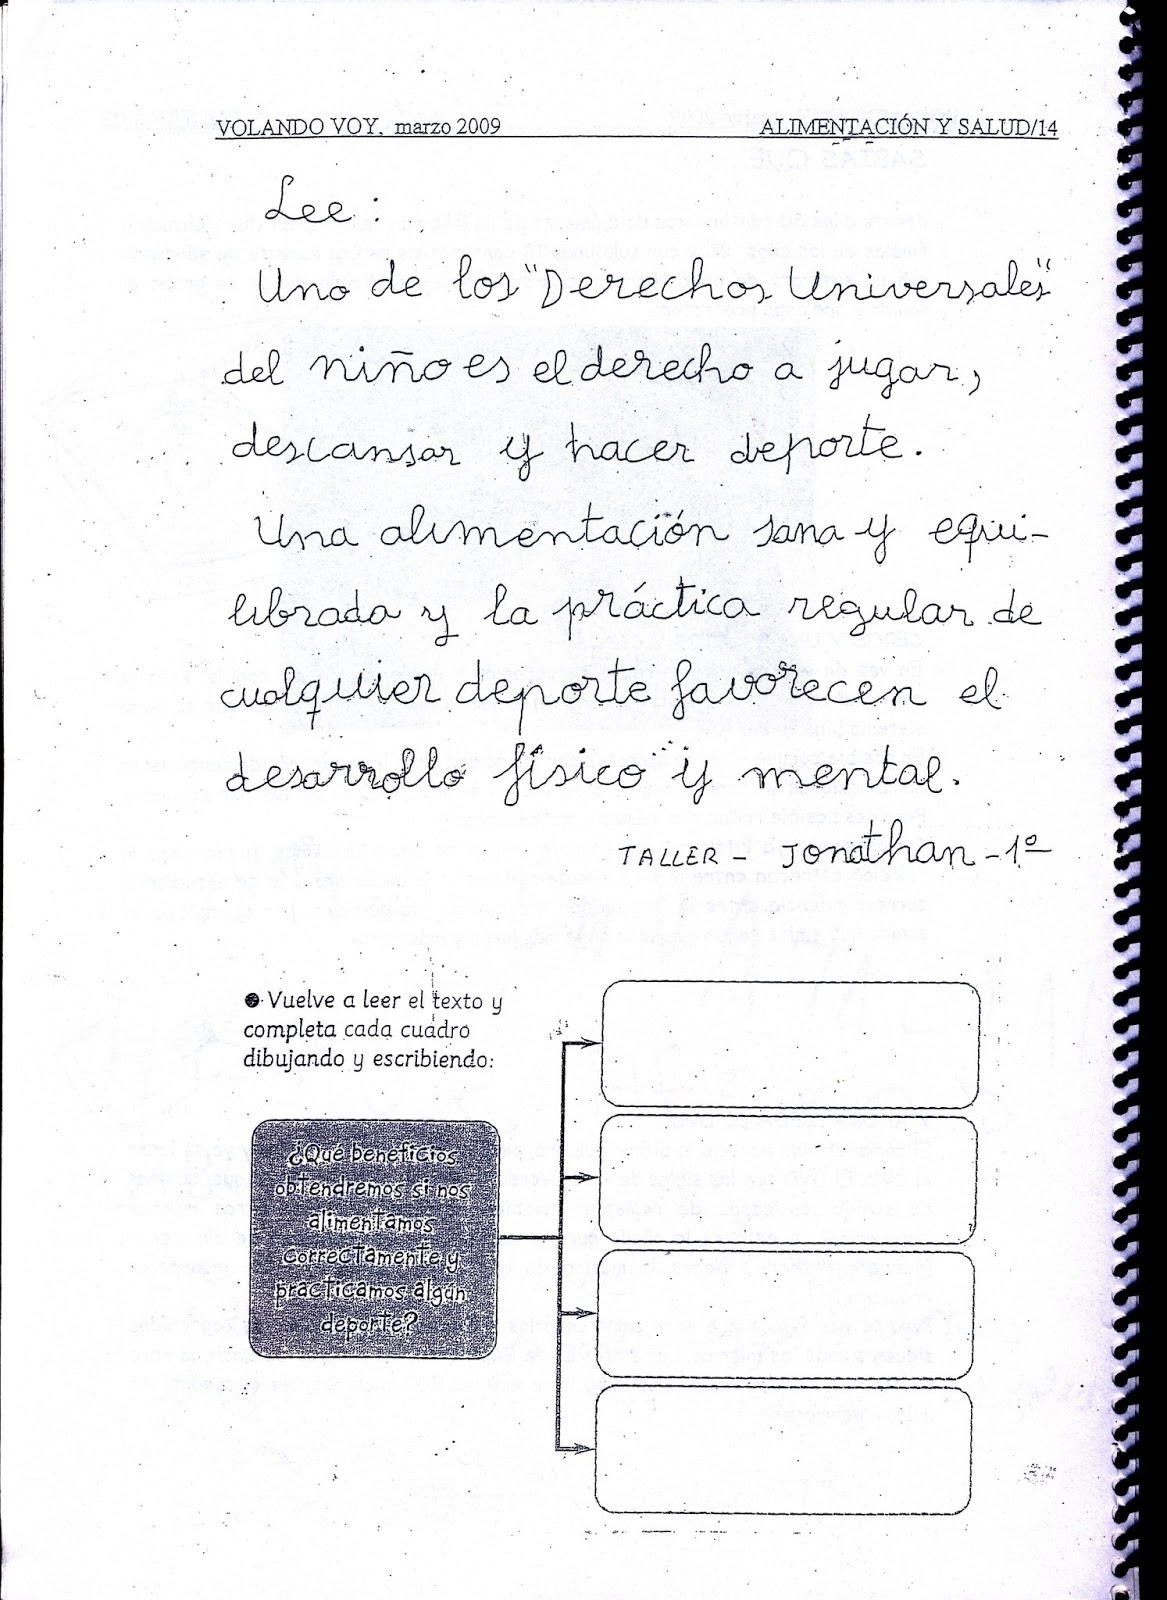 VOLANDO VOY. marzo 2009 ALIMENTACIÓN Y SALUD/14
Lee:
Uno de los "Derechos Universales"
del niño es el derecho a jugar,
descansar y hacer deporte.
Una alimentación sana y equi-
librada y la práctica regular de
cualquier deporte favorecen el
desarrollo físico y mental.
TALLER - Jonathan - 1º
● Vuelve a leer el texto y
completa cada cuadro
dibujando y escribiendo:
¿Qué beneficios
obtendremos si nos
alimentamos
correctamente y
practicamos algún
deporte?